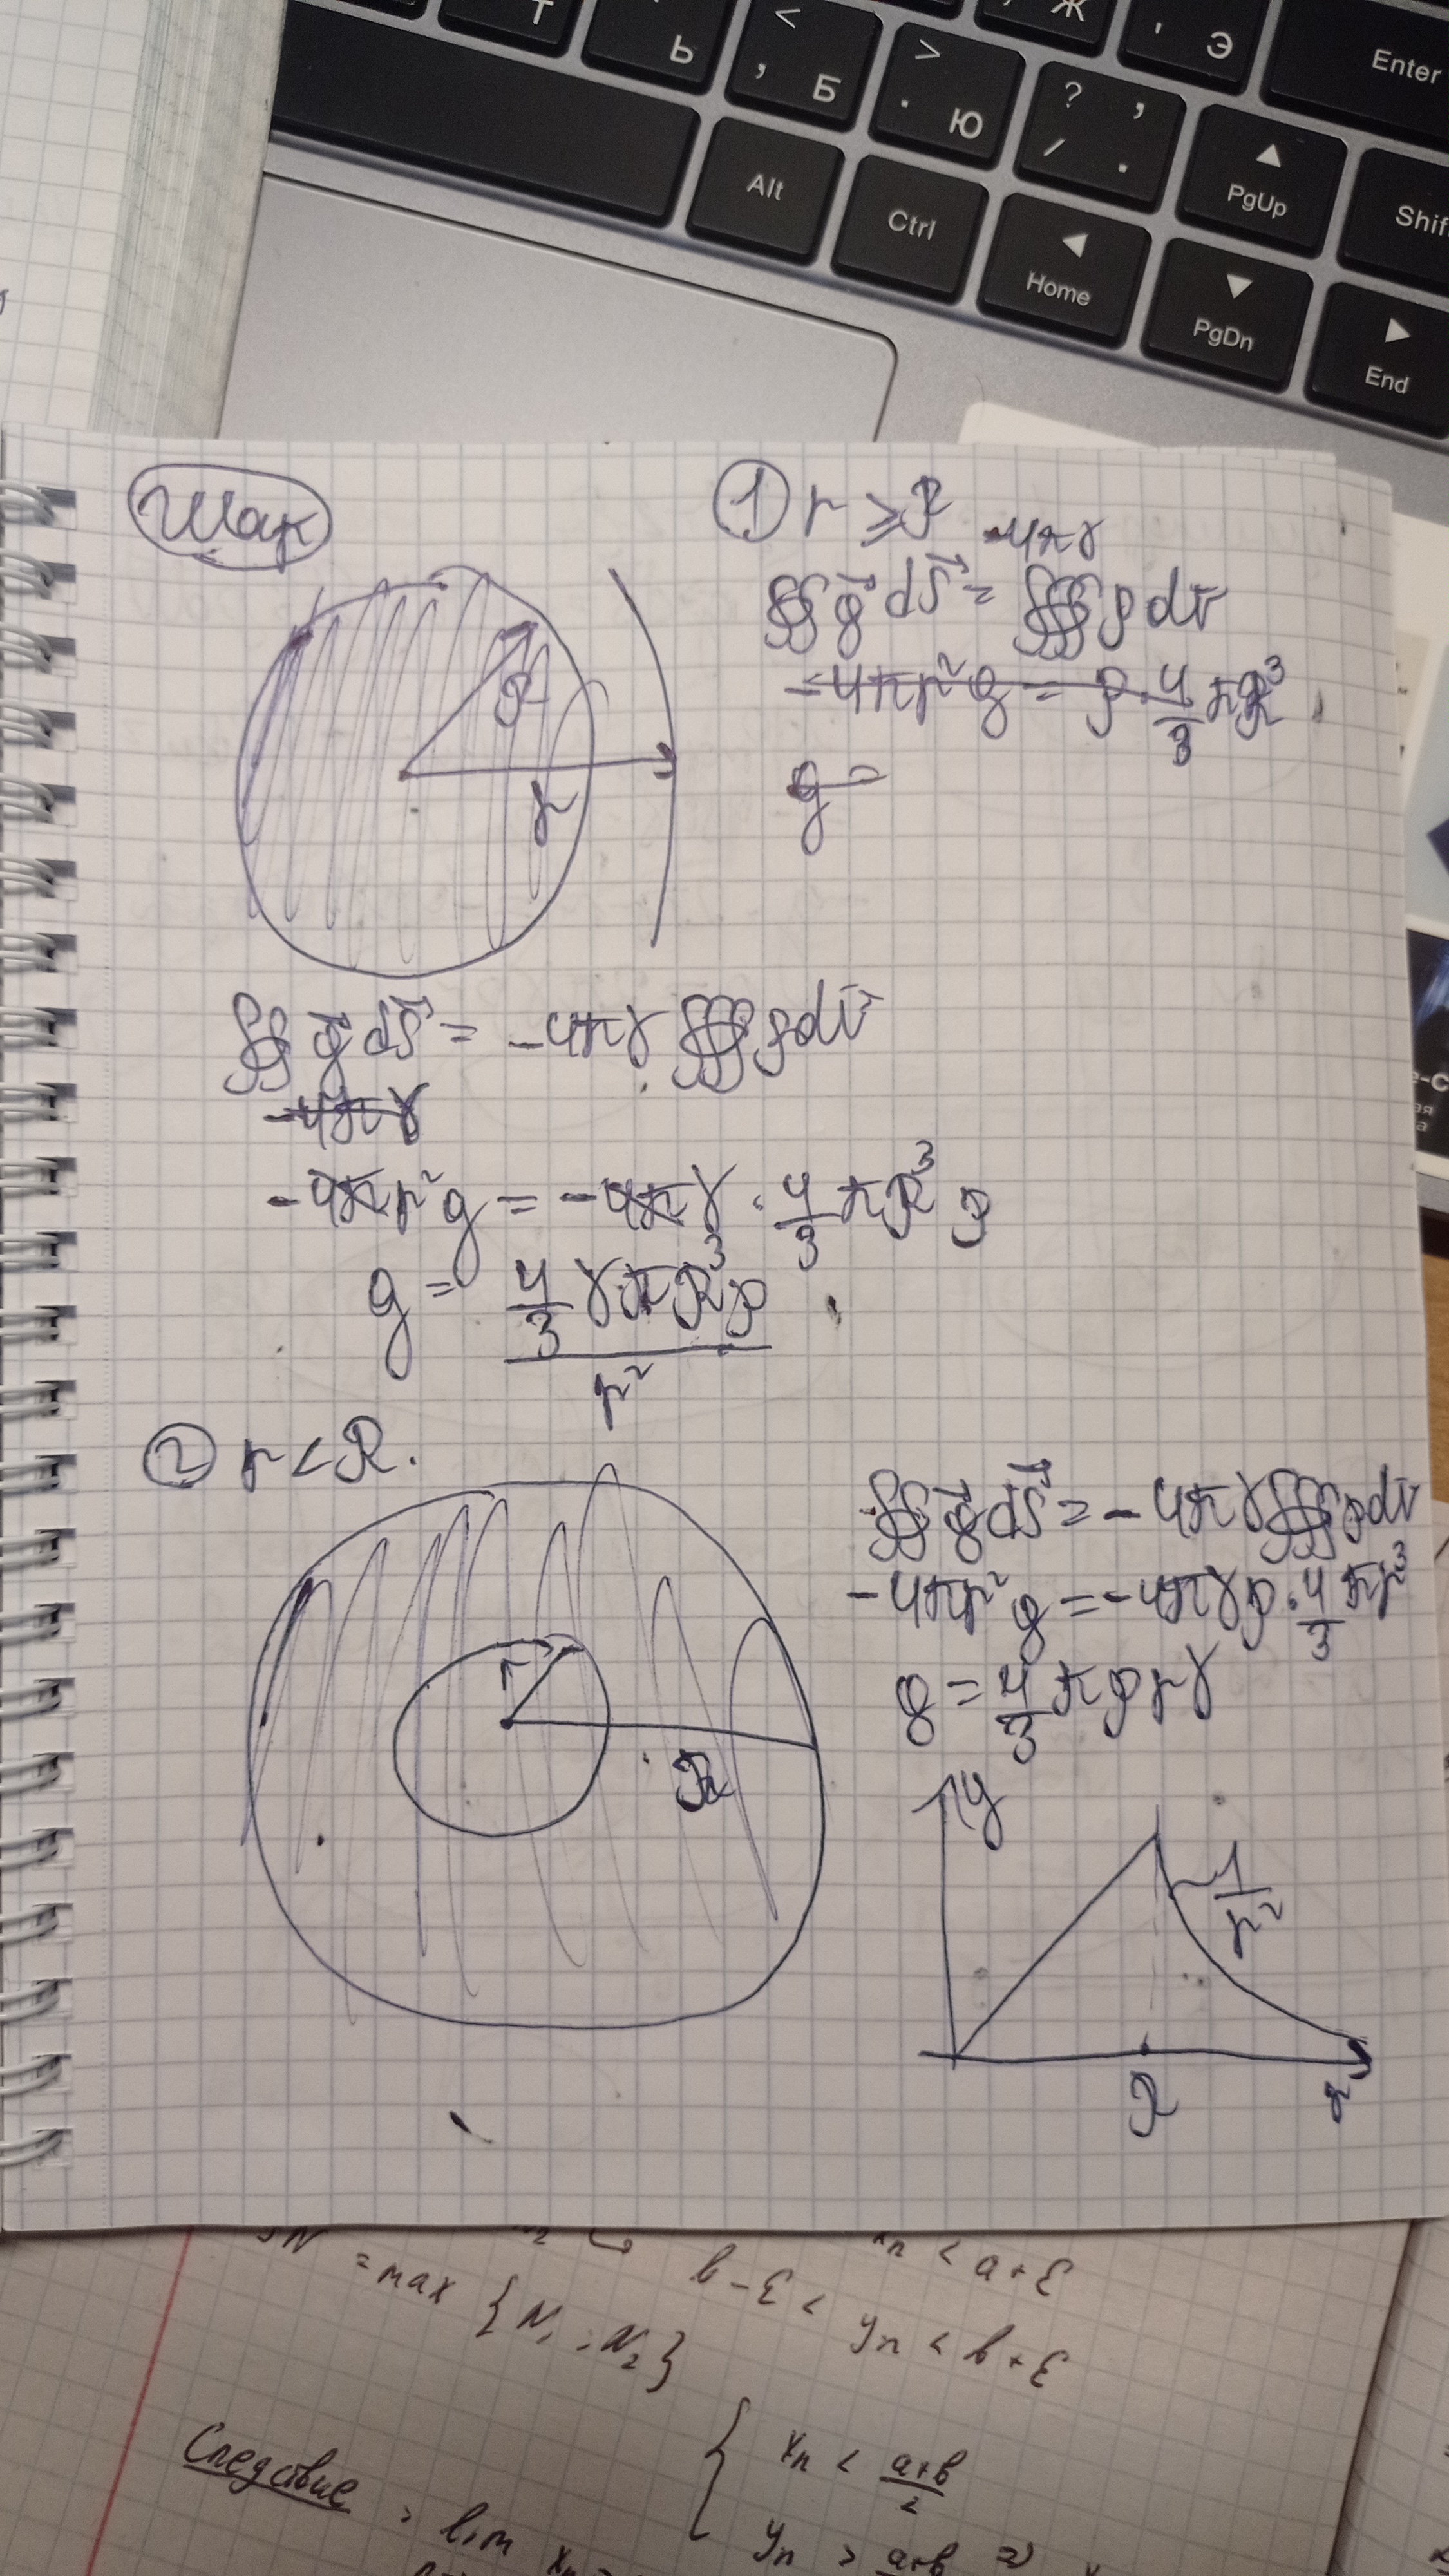 Т
Ь
Ж
Э
Enter
< , Б
> . Ю
? , / .
Alt
Ctrl
PgUp
Home
PgDn
End
Shif
Шар
① r ⩾ R
-4πγ
∯ g⃗ dS⃗ = ∰ ρ dv
-4πr² g = ρ · 4/3 πR³
g =
R
r
∯ g⃗ dS⃗ = -4πγ ∰ ρ dv
-4πγ
-4πr² g = -4πγ · 4/3 πR³ ρ
g = 4/3 γπR³ρ / r²
② r < R.
∯ g⃗ dS⃗ = -4πγ ∰ ρ dv
-4πr² g = -4πγρ · 4/3 πr³
g = 4/3 πρrγ
r
R
g
1/r²
R
r
= max { N₁ ; N₂ }
xₙ < a+ε
b-ε < yₙ < b+ε
Следствие
lim xₙ
xₙ < a+b/2
yₙ > a+b